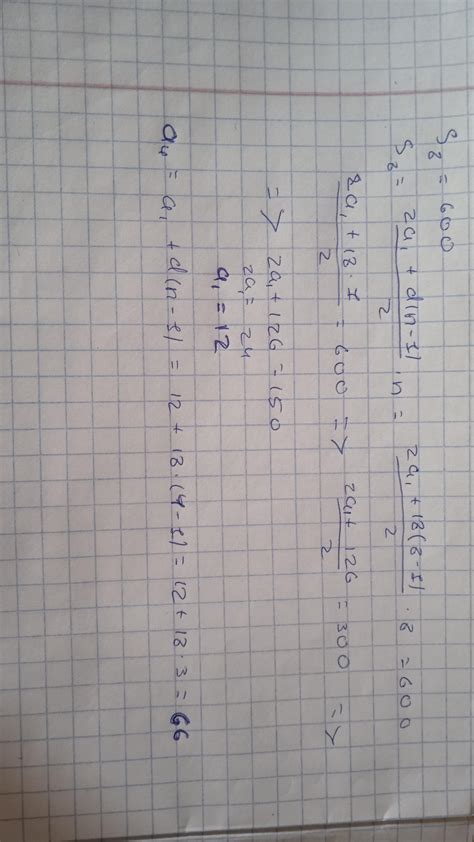 S₈ = 600
S₈ = (2a₁ + d(n-1))/2 · n = (2a₁ + 18(8-1))/2 · 8 = 600
(2a₁ + 18 · 7)/2 = 600 => (2a₁ + 126)/2 = 300 =>
=> 2a₁ + 126 = 150
2a₁ = 24
a₁ = 12
a₄ = a₁ + d(n-1) = 12 + 18 · (4-1) = 12 + 18 · 3 = 66